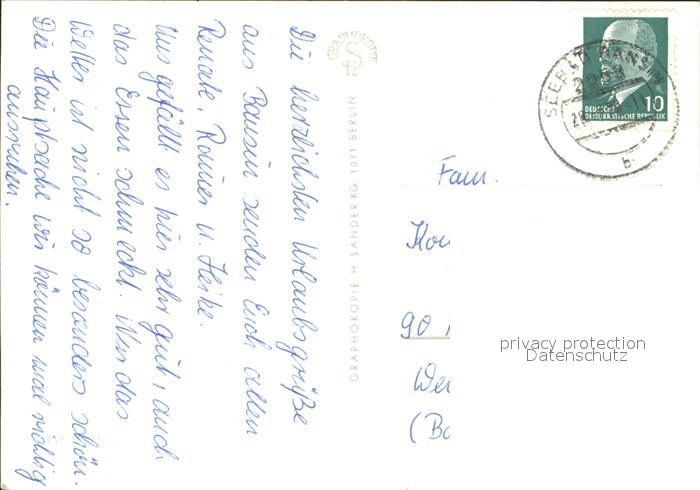 Die herzlichsten Urlaubsgrüße
aus Bansin senden Euch allen
Renate, Rainer u. Heike.
Uns gefällt es hier sehr gut, auch
das Essen schmeckt. Nur das
Wetter ist nicht so besonders schön.
Die Hauptsache wir können mal richtig
ausruhen.
GRAPHOKOPIE
GRAPHOKOPIE H SANDER KG, 1071 BERLIN
SEEBAD BANSIN
2253
b
DEUTSCHE
DEMOKRATISCHE REPUBLIK
10
Fam.
90
(Ba
privacy protection
Datenschutz